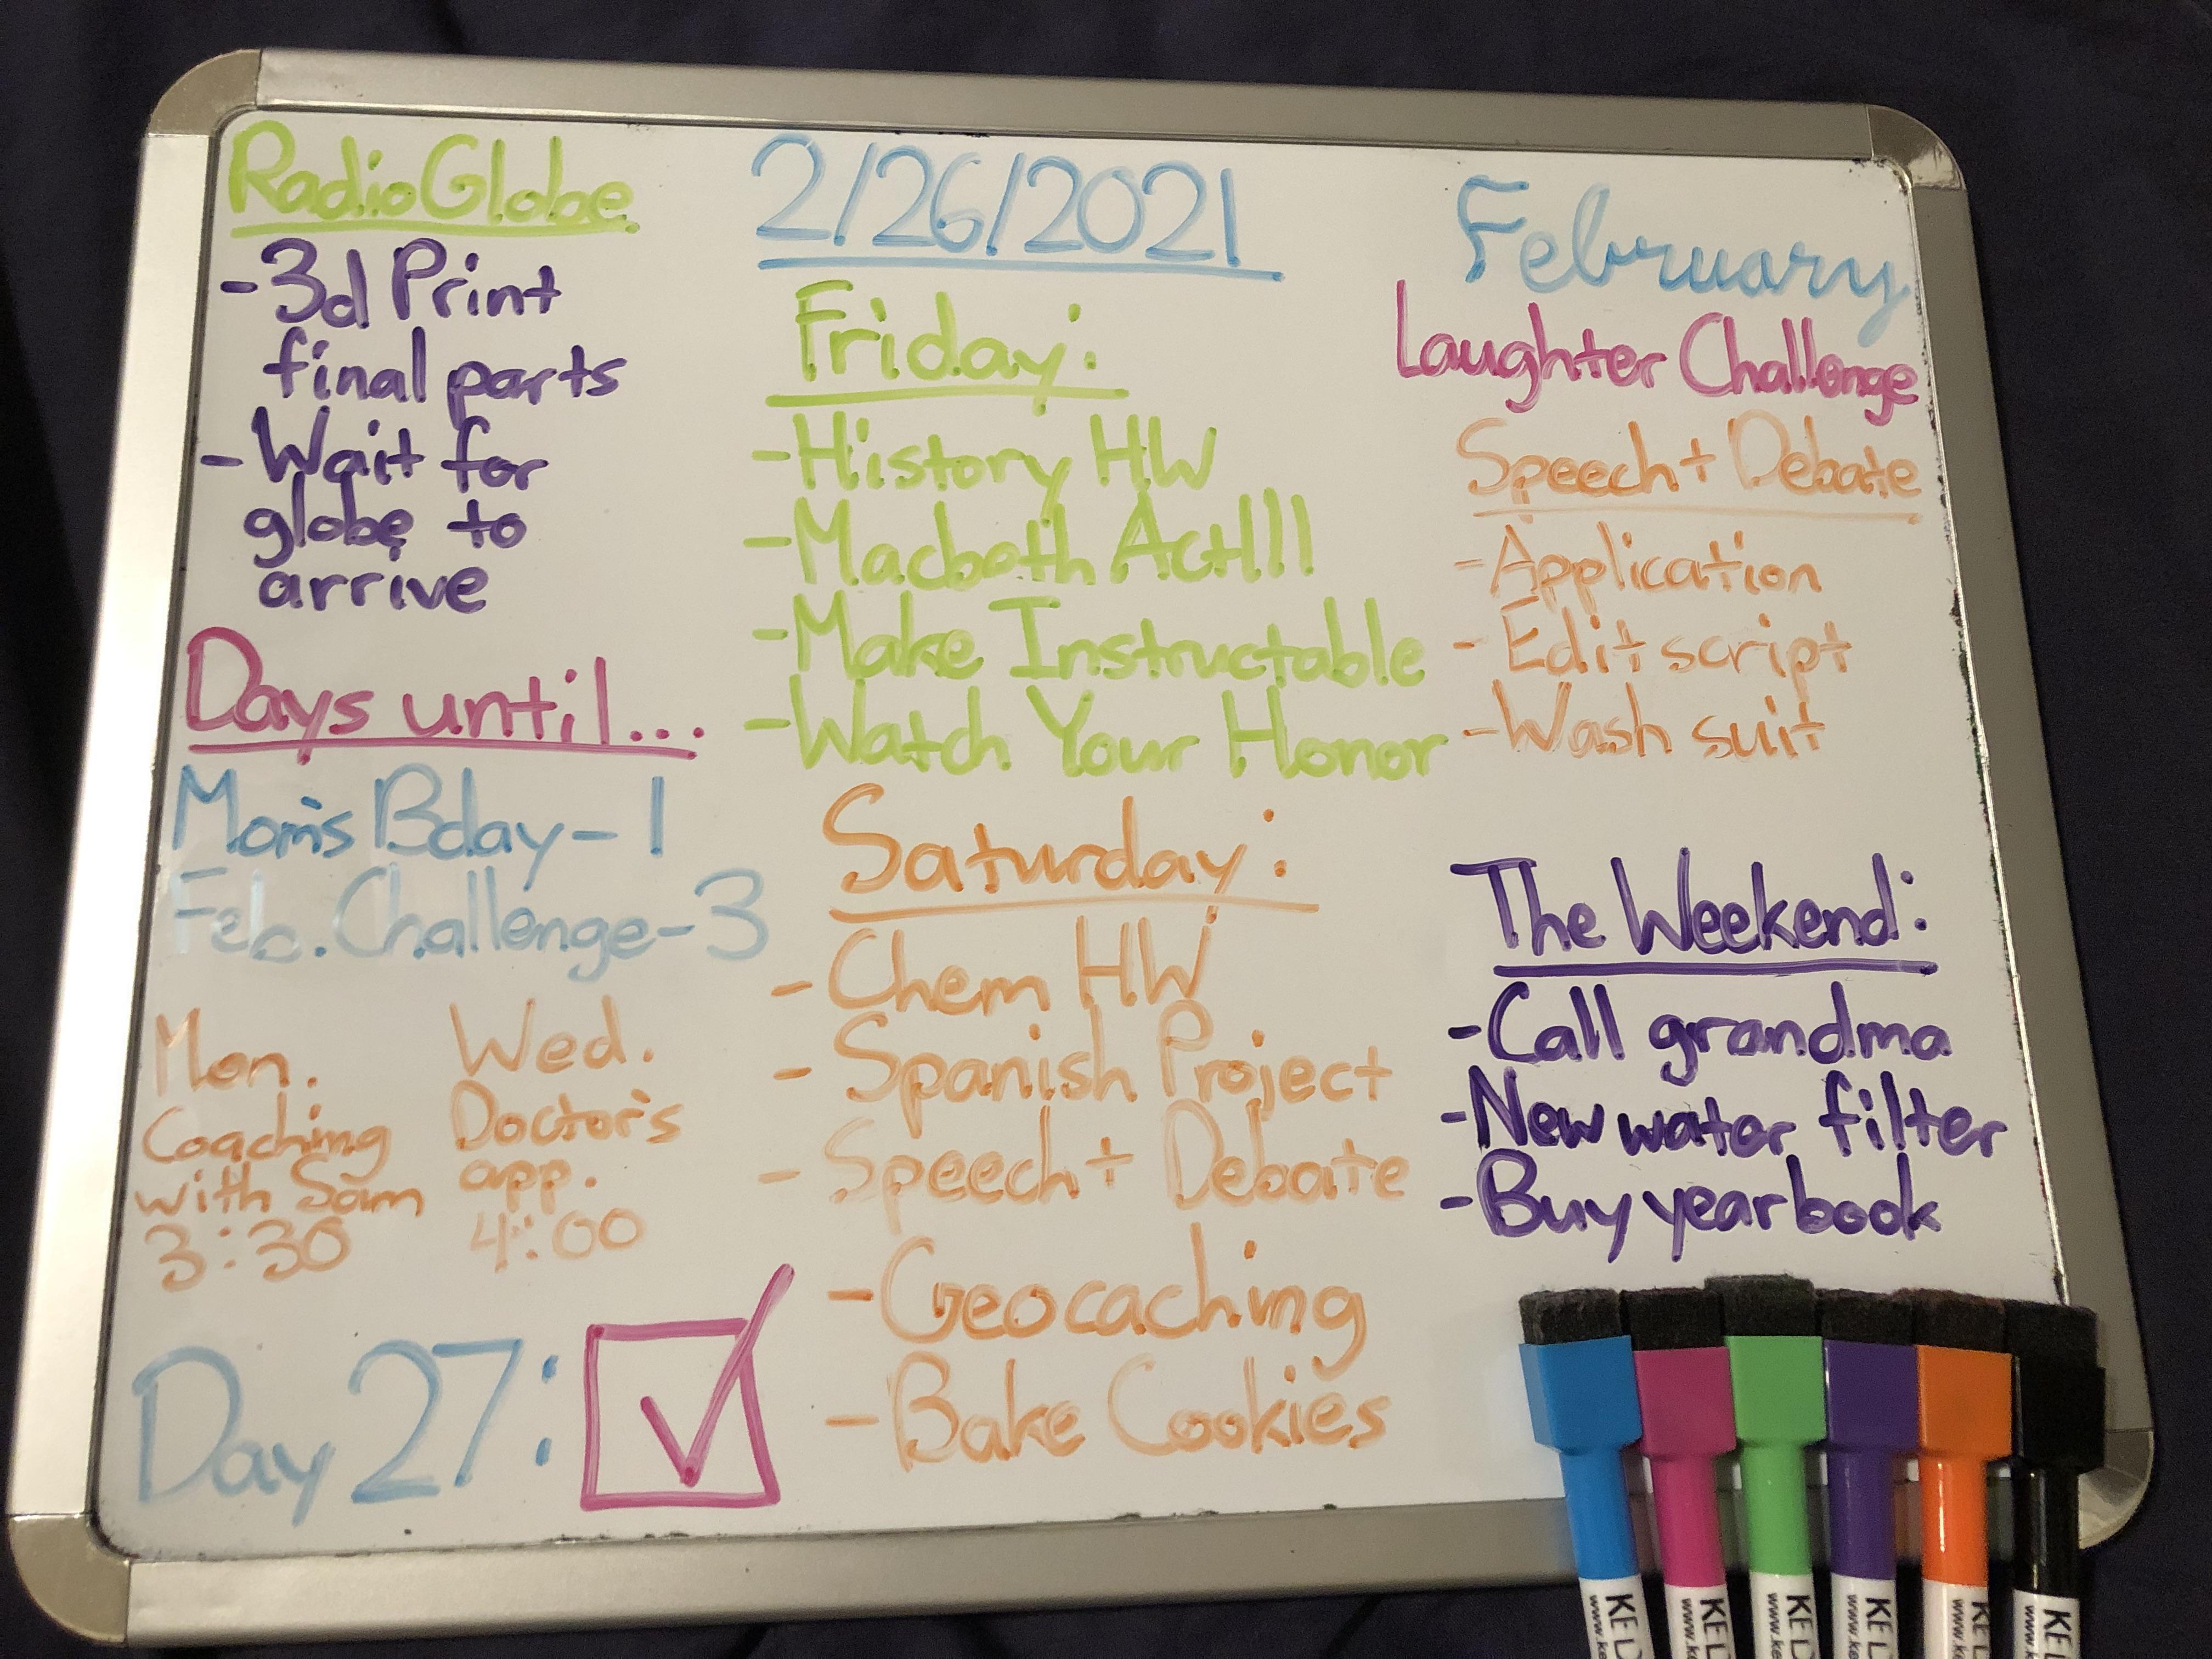 RadioGlobe
-3d Print
final parts
-Wait for
globe to
arrive
Days until...
Mom's Bday-1
Feb. Challenge-3
Mon.
Coaching
with Sam
3:30
Wed.
Doctor's
app.
4:00
Day 27:
2/26/2021
Friday:
-History HW
-Macbeth Act III
-Make Instructable
-Watch Your Honor
Saturday:
-Chem HW
-Spanish Project
-Speech + Debate
-Geocaching
-Bake Cookies
February
Laughter Challenge
Speech + Debate
-Application
-Edit script
-Wash suit
The Weekend:
-Call grandma
-New water filter
-Buy yearbook